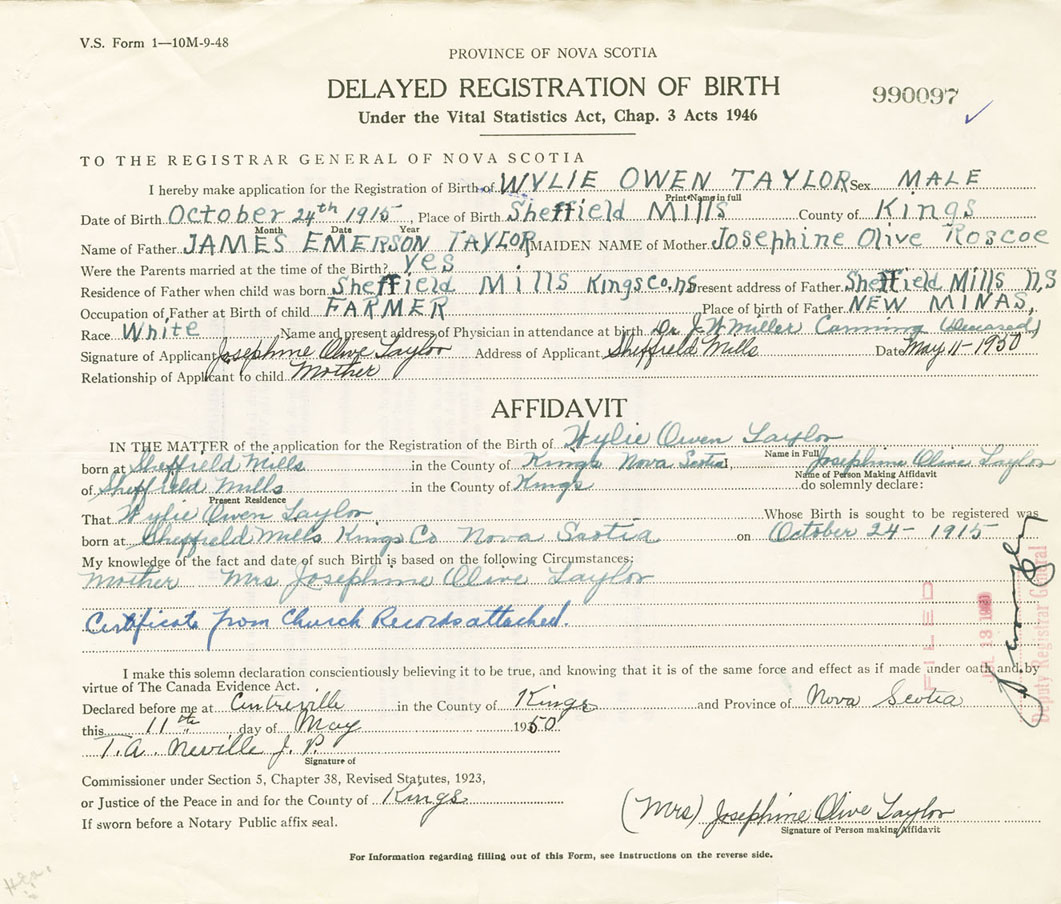 V.S. Form 1—10M-9-48
PROVINCE OF NOVA SCOTIA
DELAYED REGISTRATION OF BIRTH
990097
Under the Vital Statistics Act, Chap. 3 Acts 1946
TO THE REGISTRAR GENERAL OF NOVA SCOTIA
I hereby make application for the Registration of Birth of WYLIE OWEN TAYLOR Sex MALE
Print Name in full
Date of Birth October 24th 1915, Place of Birth Sheffield Mills County of Kings
Month Date Year
Name of Father JAMES EMERSON TAYLOR MAIDEN NAME of Mother Josephine Olive Roscoe
Were the Parents married at the time of the Birth? yes
Residence of Father when child was born Sheffield Mills Kings co. ns Present address of Father Sheffield Mills N,S
Occupation of Father at Birth of child FARMER Place of birth of Father NEW MINAS,
Race White Name and present address of Physician in attendance at birth Dr. J. W. Miller Canning (Deceased)
Signature of Applicant Josephine Olive Taylor Address of Applicant Sheffield Mills Date May 11-1950
Relationship of Applicant to child Mother
AFFIDAVIT
IN THE MATTER of the application for the Registration of the Birth of Wylie Owen Taylor
Name in Full
born at Sheffield Mills in the County of Kings Nova Scotia, Josephine Olive Taylor
Name of Person Making Affidavit
of Sheffield Mills in the County of Kings do solemnly declare:
Present Residence
That Wylie Owen Taylor Whose Birth is sought to be registered was
born at Sheffield Mills Kings Co Nova Scotia on October 24- 1915
My knowledge of the fact and date of such Birth is based on the following Circumstances:
Mother Mrs Josephine Olive Taylor
Certificate from Church Records attached.
FILED
13
Deputy Registrar General
I make this solemn declaration conscientiously believing it to be true, and knowing that it is of the same force and effect as if made under oath and by
virtue of The Canada Evidence Act.
Declared before me at Centreville in the County of Kings and Province of Nova Scotia
this 11th day of May 1950
T. A. Neville J. P.
Signature of
Commissioner under Section 5, Chapter 38, Revised Statutes, 1923,
or Justice of the Peace in and for the County of Kings
If sworn before a Notary Public affix seal.
(Mrs) Josephine Olive Taylor
Signature of Person making Affidavit
For Information regarding filling out of this Form, see instructions on the reverse side.